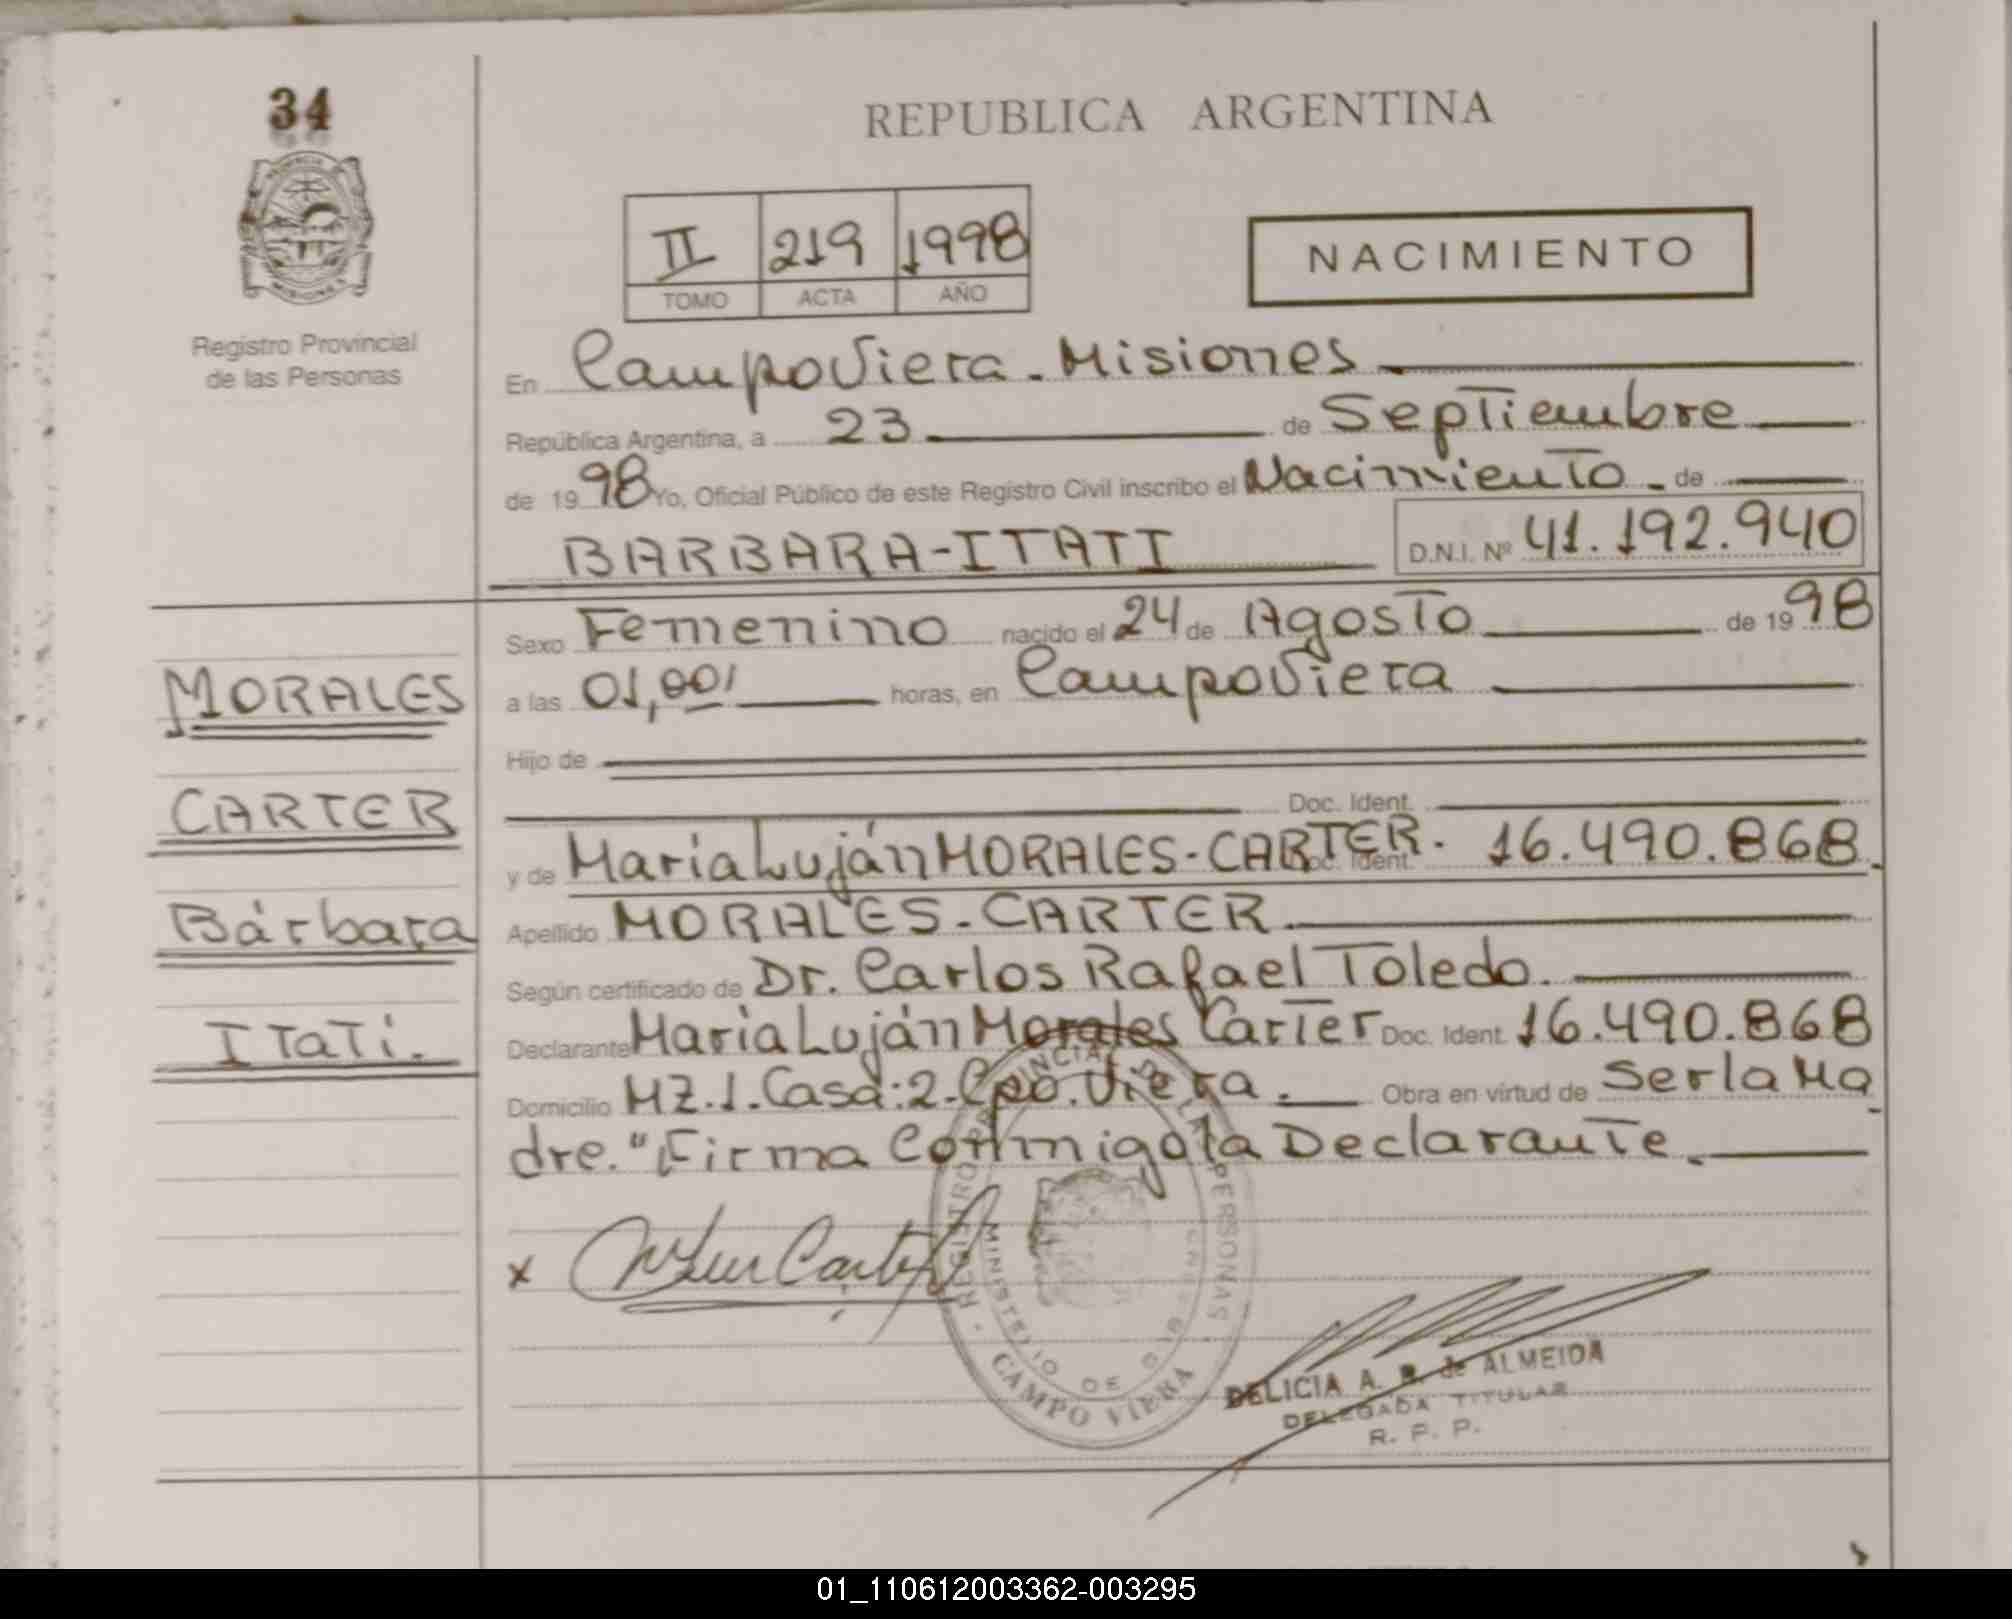 34
REPUBLICA ARGENTINA
II 219 1998
TOMO ACTA AÑO
NACIMIENTO
Registro Provincial
de las Personas
En Campo Viera - Misiones
República Argentina, a 23 de Septiembre
de 1998 Yo, Oficial Público de este Registro Civil inscribo el Nacimiento. de
BARBARA-ITATI D.N.I. Nº 41.192.940
Sexo Femenino nacido el 24 de Agosto de 1998
a las 01,00 horas, en Campo Viera
Hijo de
Doc. Ident.
y de María Luján MORALES-CARTER. Doc. Ident. 16.490.868.
Apellido MORALES-CARTER.
Según certificado de Dr. Carlos Rafael Toledo.
Declarante María Luján Morales Carter Doc. Ident. 16.490.868
Domicilio MZ.1.Casa:2.Cpo.Viera. Obra en virtud de ser la Ma
dre." Firma Conmigo la Declarante.
MORALES
CARTER
Bárbara
Itatí.
x
REGISTRO PROVINCIAL DE LAS PERSONAS
MINISTERIO DE GOBIERNO
CAMPO VIERA
DELICIA A. de ALMEIDA
DELEGADA TITULAR
R. P. P.
01_110612003362-003295